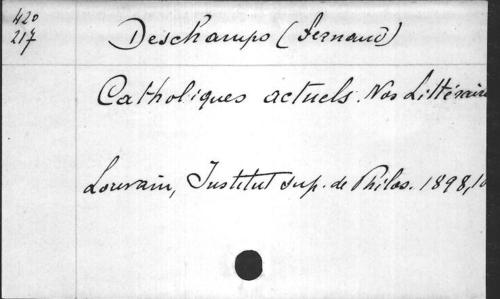 420
217
Deschamps (Fernand)
Catholiques actuels. Nos Littérair
Louvain, Institut sup. de Philos. 1898, 10